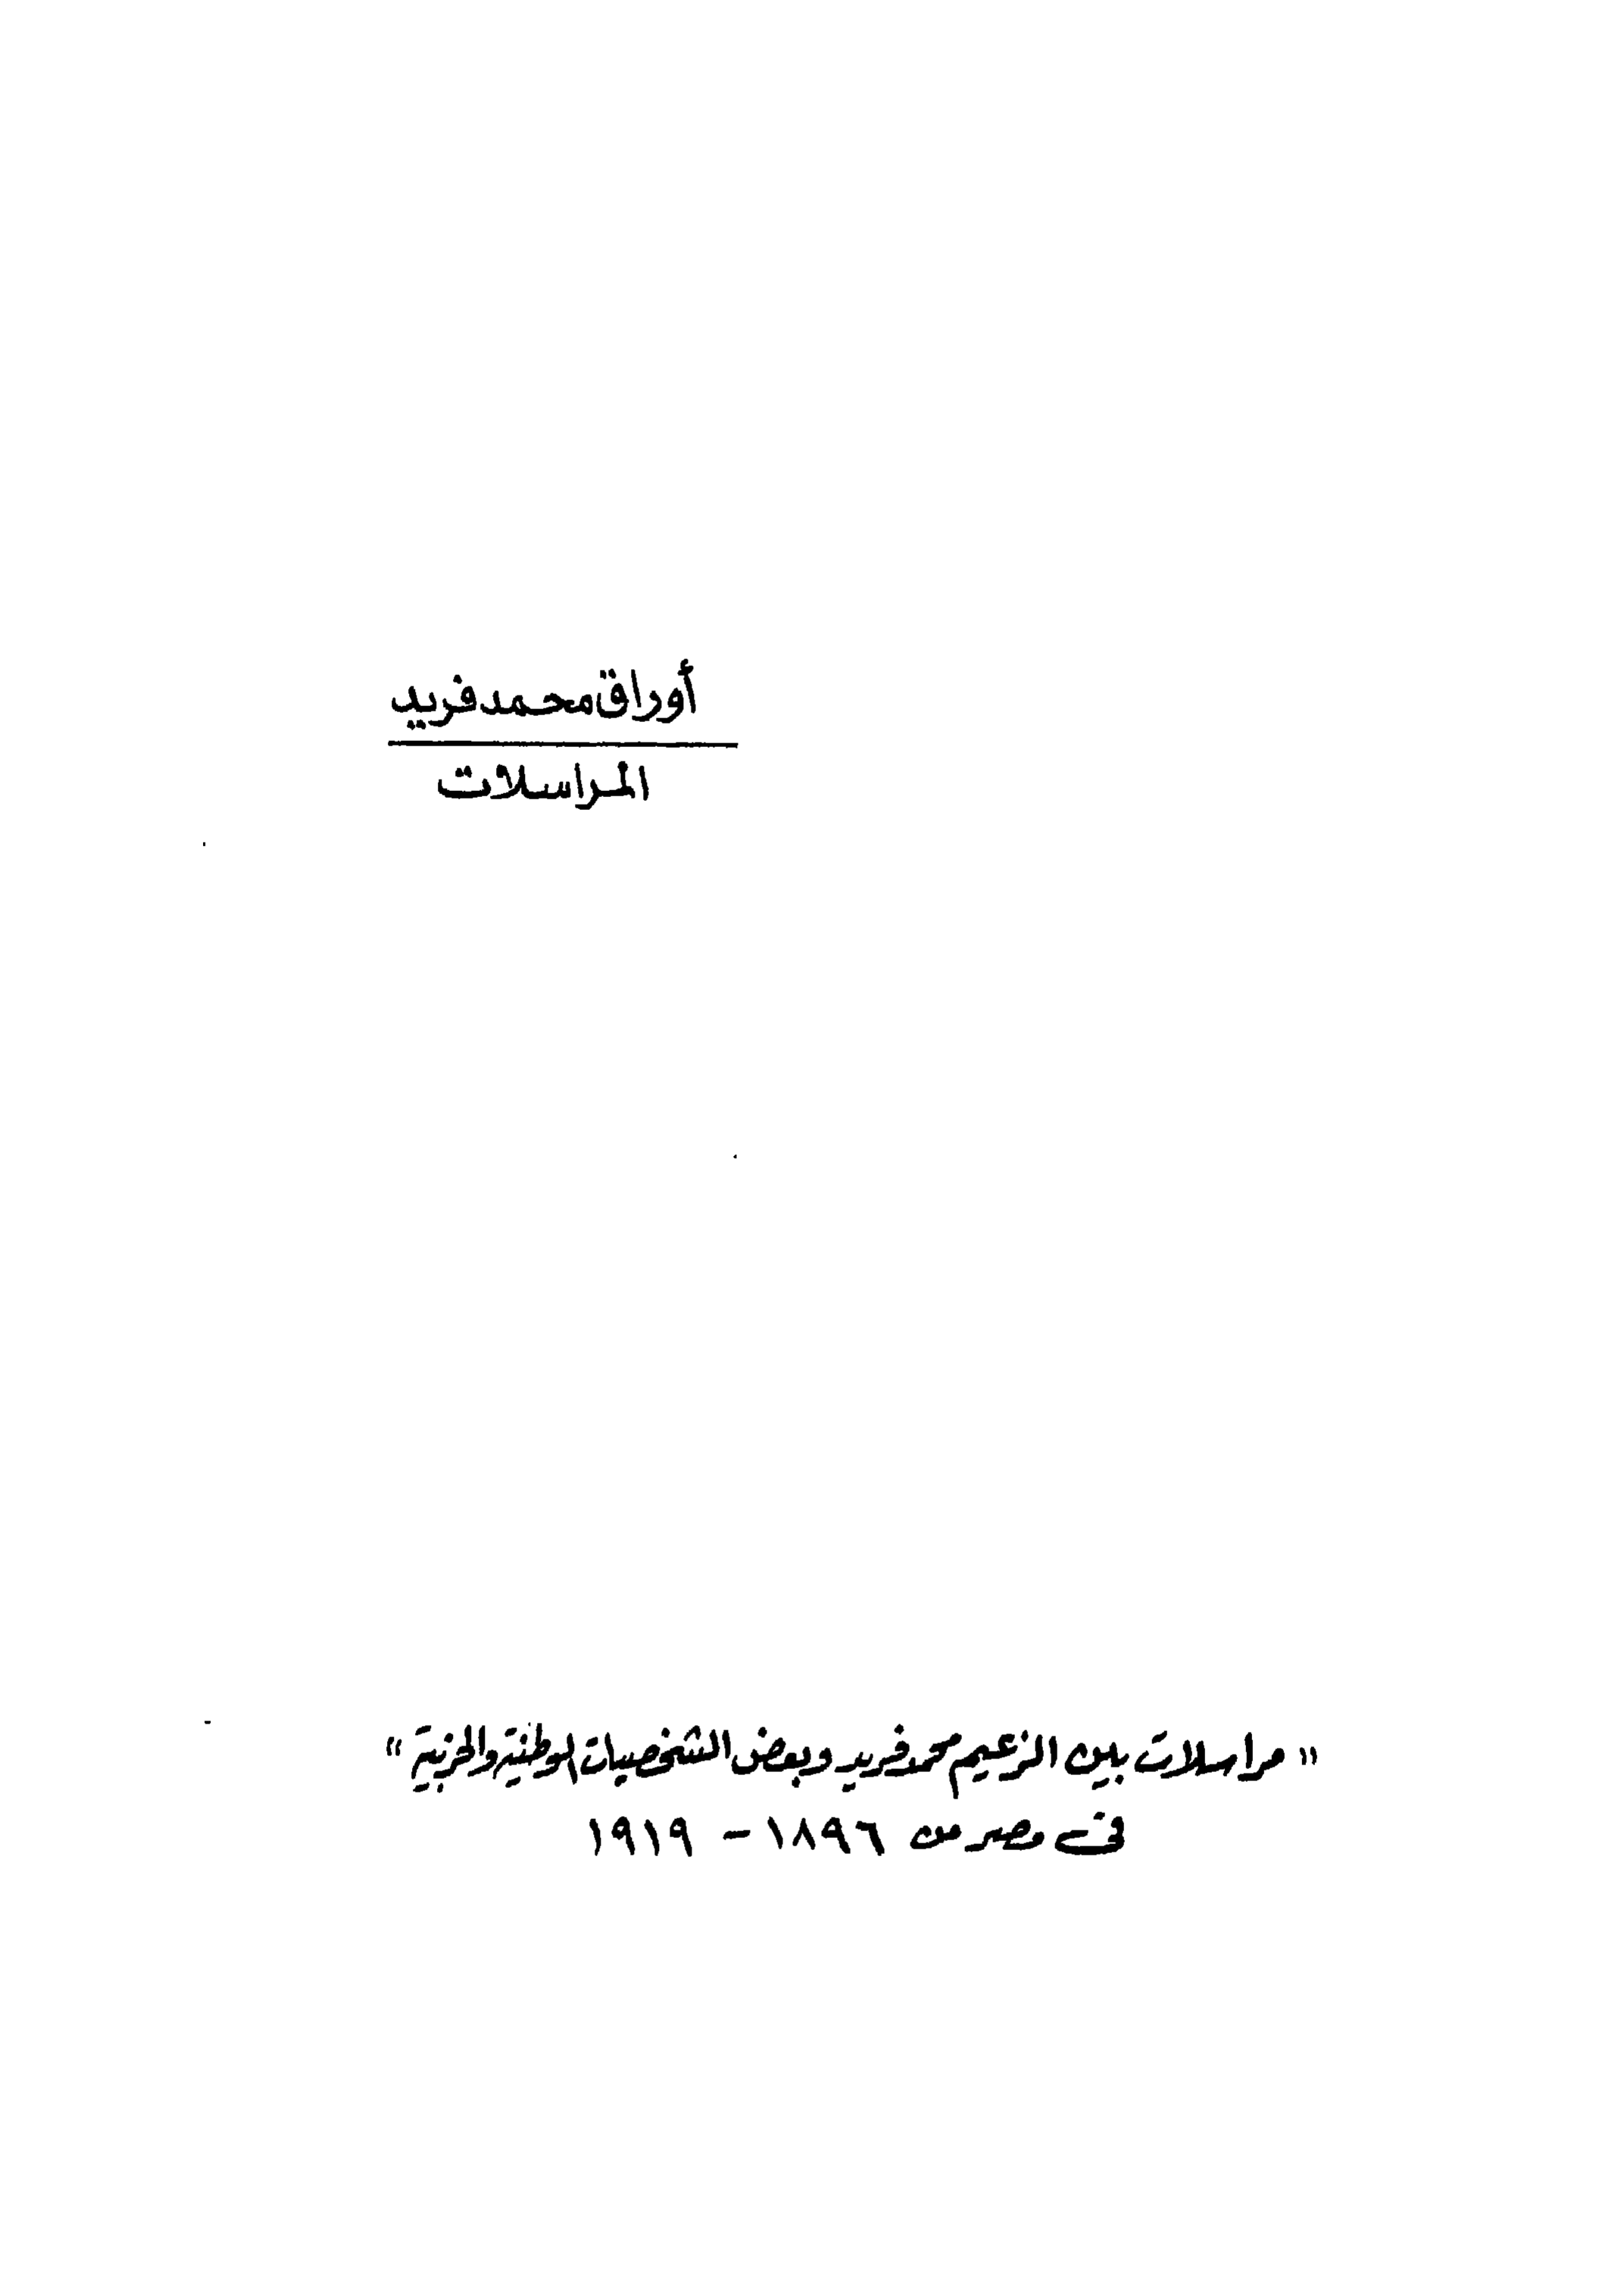 أوراق محمد فريد
المراسلات
"مراسلات بين الزعيم محمد فريد وبعض الشخصيات الوطنية والحزبية"
فى مصر من ١٨٩٦ - ١٩١٩